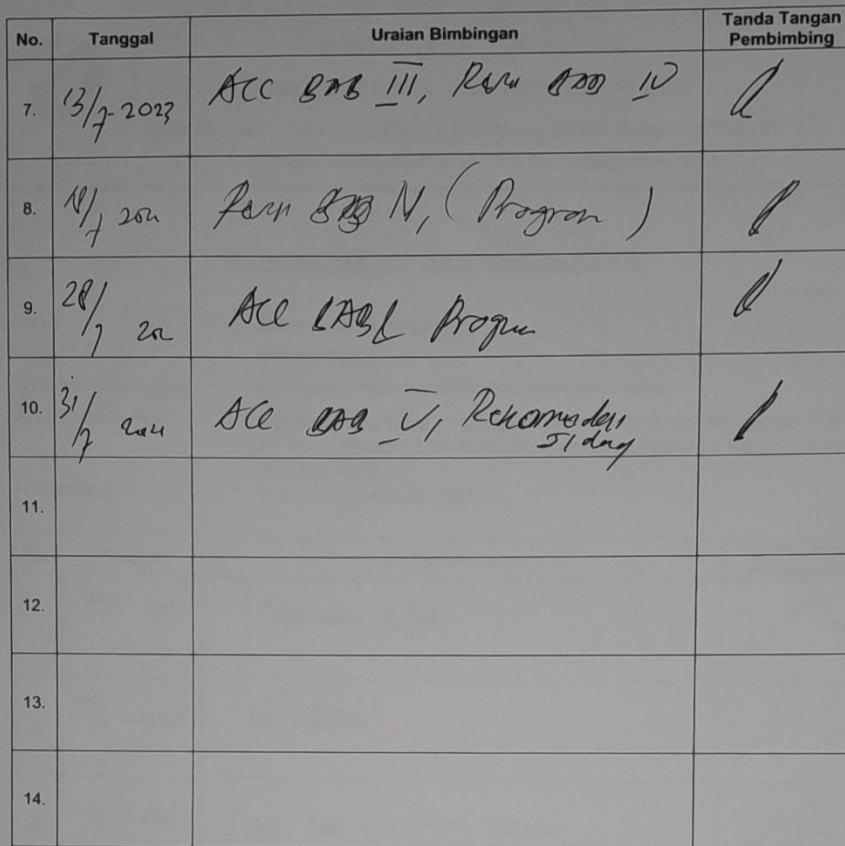 No. Tanggal Uraian Bimbingan Tanda Tangan
Pembimbing
7. 13/7-2023 ACC BAB III, BAB IV
8. 18/7 BAB IV, (Program)
9. 28/7 ACC BAB Program
10. 31/7 ACC BAB V, Rekomendasi
Sidang
11.
12.
13.
14.